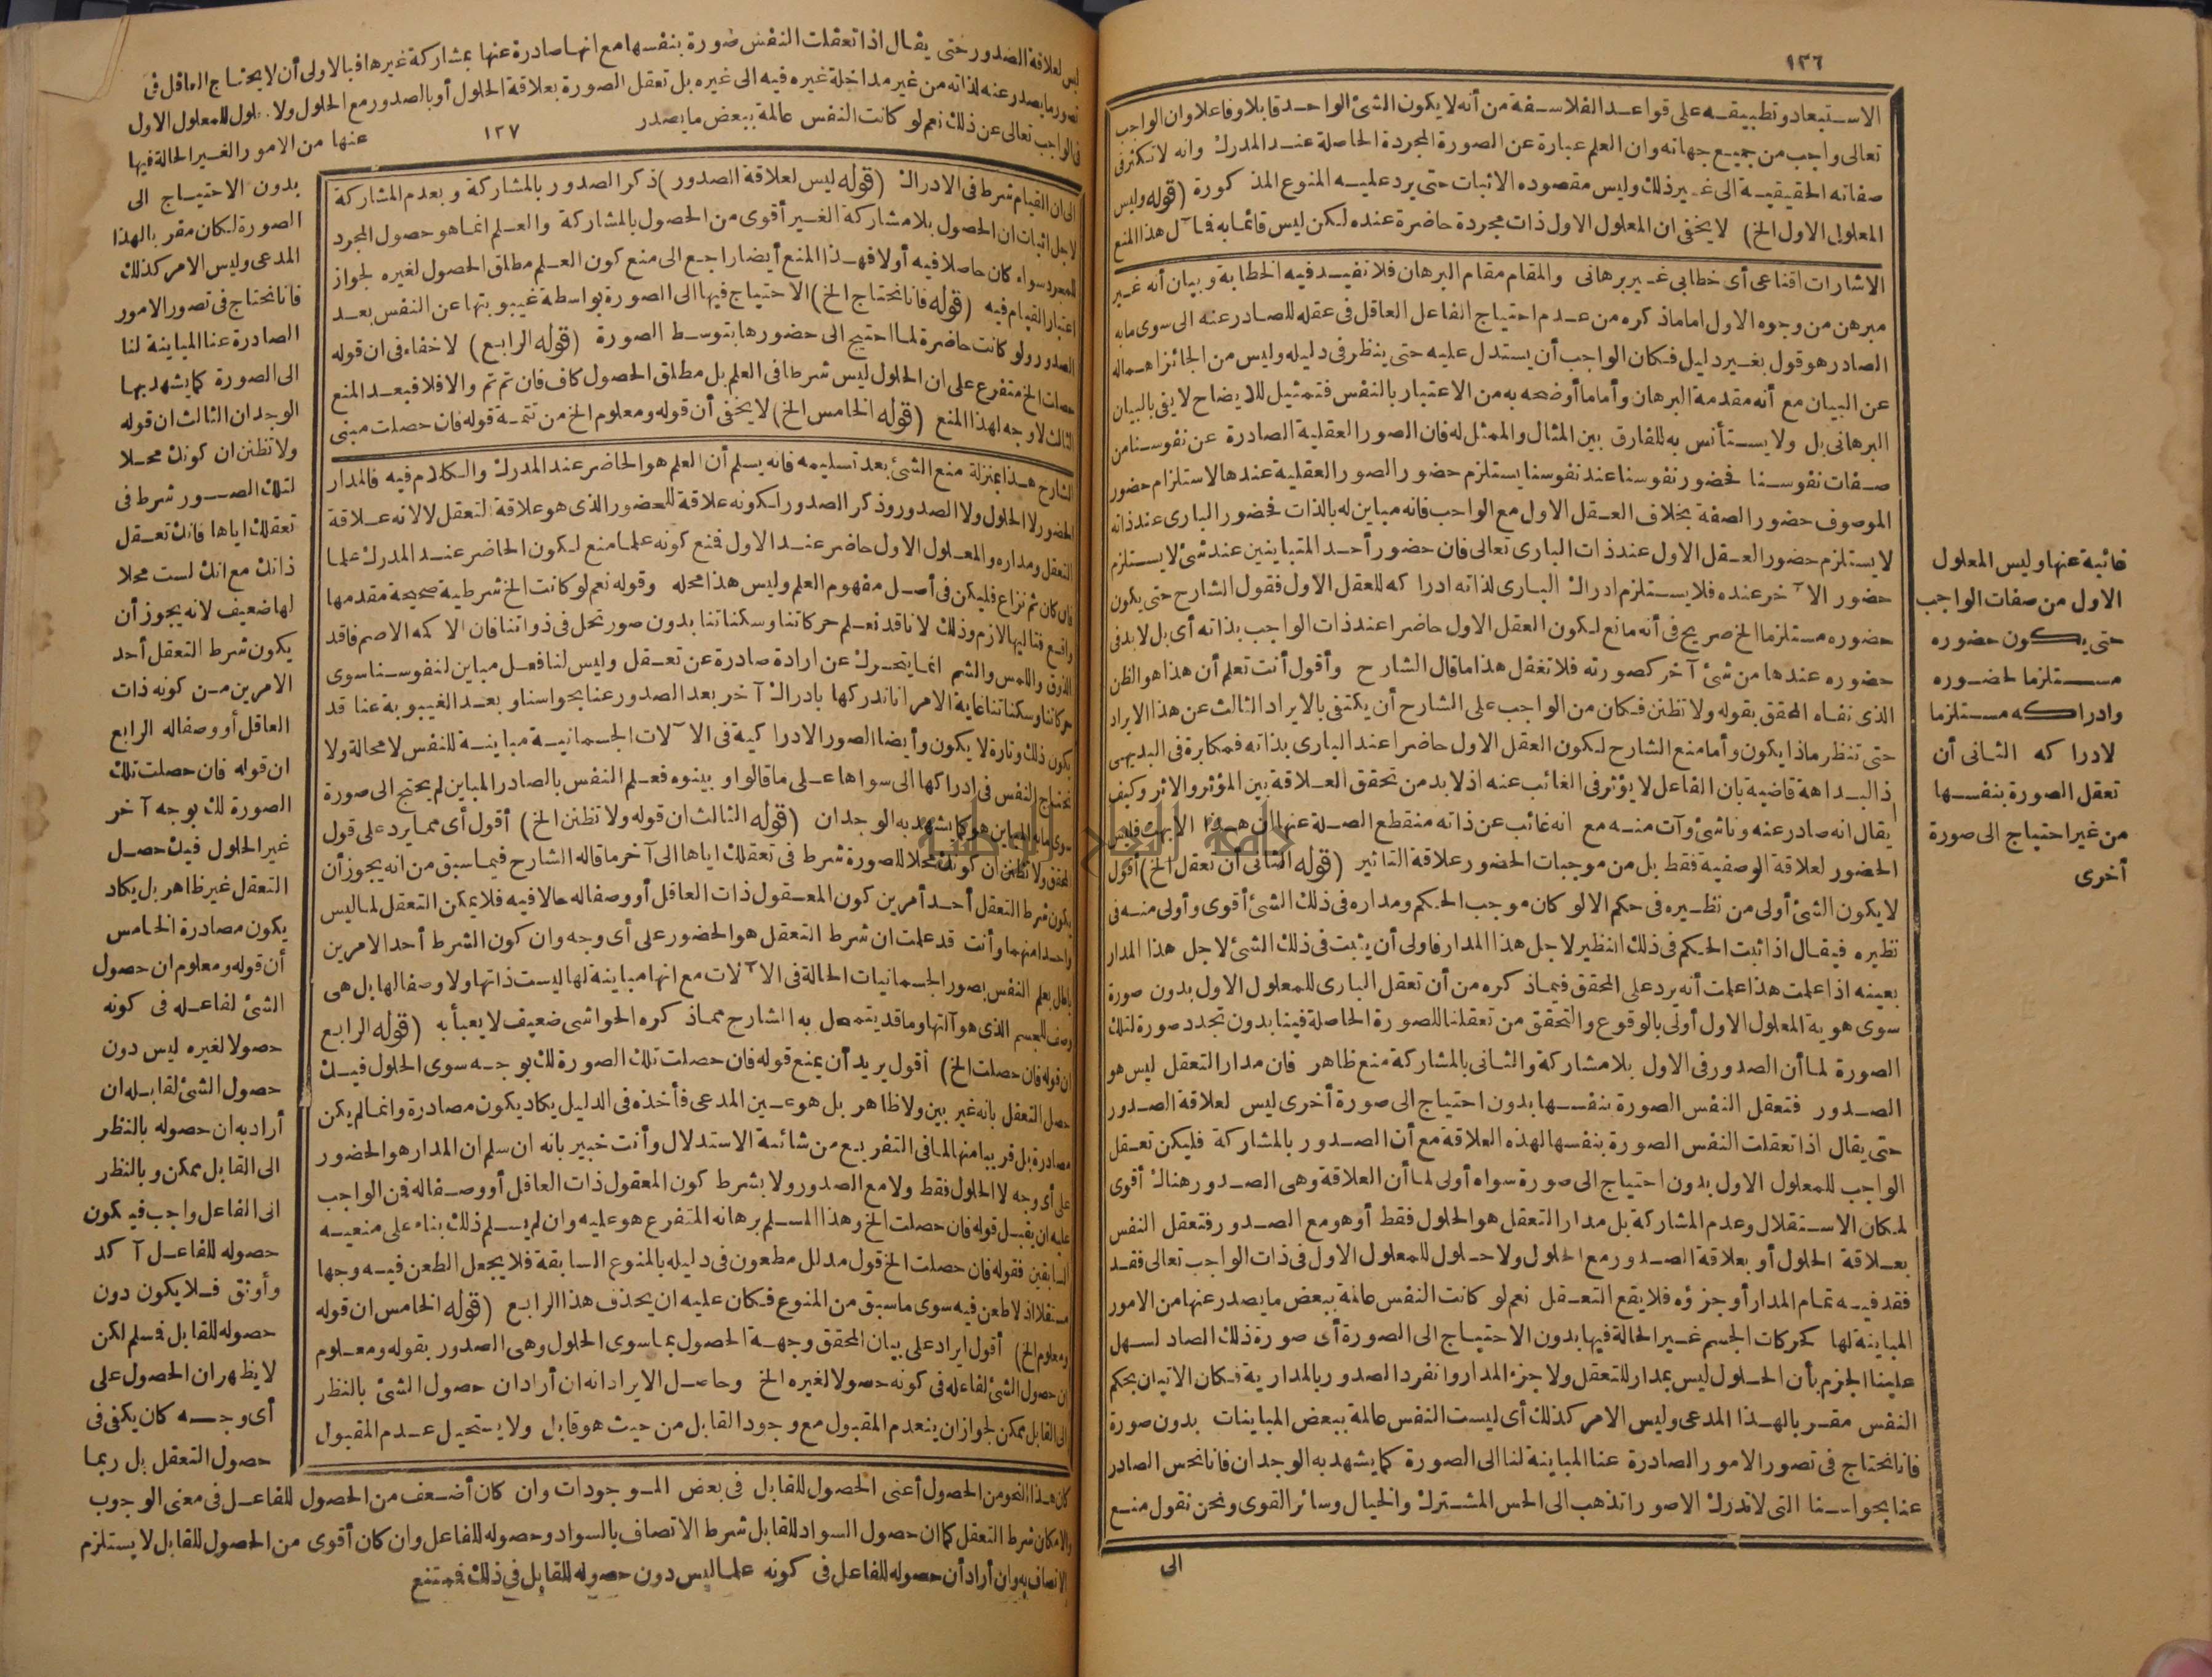 ١٣٦
الاستبعاد وتطبيقه على قواعد الفلاسفة من أنه لا يكون الشئ الواحد قابلا وفاعلا وان الواجب
تعالى واجب من جميع جهاته وان العلم عبارة عن الصورة المجردة الحاصلة عند المدرك وانه لا تكثر فى
صفاته الحقيقية الى غير ذلك وليس مقصوده الاثبات حتى يرد عليه المنوع المذكورة (قوله وليس
المعلول الاول الخ) لا يخفى ان المعلول الاول ذات مجردة حاضرة عنده لكن ليس قائما به فمآل هذا المنع
الاشارات اقناعى أى خطابى غير برهانى والمقام مقام البرهان فلا تفيد فيه الخطابة وبيان أنه غير
مبرهن من وجوه الاول اما ما ذكره من عدم احتياج الفاعل العاقل فى عقله للصادر عنه الى سوى مابه
الصادر هو قول بغير دليل فكان الواجب أن يستدل عليه حتى ينظر فى دليله وليس من الجائز اهماله
عن البيان مع أنه مقدمة البرهان وأما ما أوضحه به من الاعتبار بالنفس فتمثيل للايضاح لا يفى بالبيان
البرهانى بل ولا يستأنس به للفارق بين المثال والممثل له فان الصور العقلية الصادرة عن نفوسنا من
صفات نفوسنا فحضور نفوسنا عند نفوسنا يستلزم حضور الصور العقلية عندها لاستلزام حضور
الموصوف حضور الصفة بخلاف العقل الاول مع الواجب فانه مباين له بالذات فحضور البارى عند ذاته
لا يستلزم حضور العقل الاول عند ذات البارى تعالى فان حضور أحد المتباينين عند شئ لا يستلزم
حضور الآخر عنده فلا يستلزم ادراك البارى لذاته ادراكه للعقل الاول فقول الشارح حتى يكون
حضوره مستلزما الخ صريح فى أنه مانع لكون العقل الاول حاضرا عند ذات الواجب بذاته أى بل لا بد فى
حضوره عندها من شئ آخر كصورته فلا تغفل هذا ما قال الشارح وأقول أنت تعلم أن هذا هو الظن
الذى نفاه المحقق بقوله ولا تظنن فكان من الواجب على الشارح أن يكتفى بالايراد الثالث عن هذا الايراد
حتى تنظر ماذا يكون وأما منع الشارح لكون العقل الاول حاضرا عند البارى بذاته فمكابرة فى البديهى
اذ البداهة قاضية بان الفاعل لا يؤثر فى الغائب عنه اذ لا بد من تحقق العلاقة بين المؤثر والاثر وكيف
يقال انه صادر عنه وناشئ وآت منه مع انه غائب عن ذاته منقطع الصلة عنها ان هو الا بهت فليس
الحضور لعلاقة الوصفية فقط بل من موجبات الحضور علاقة التاثير (قوله الثانى أن تعقل الخ) أقول
لا يكون الشئ أولى من نظيره فى حكم الا لو كان موجب الحكم ومداره فى ذلك الشئ أقوى وأولى منه فى
نظيره فيقال اذا ثبت الحكم فى ذلك النظير لاجل هذا المدار فاولى أن يثبت فى ذلك الشئ لاجل هذا المدار
بعينه اذا علمت هذا علمت أنه يرد على المحقق فيما ذكره من أن تعقل البارى للمعلول الاول بدون صورة
سوى هوية المعلول الاول أولى بالوقوع والتحقق من تعقلنا للصورة الحاصلة فينا بدون تجدد صورة لتلك
الصورة لما أن الصدور فى الاول بلا مشاركة والثانى بالمشاركة منع ظاهر فان مدار التعقل ليس هو
الصدور فتعقل النفس الصورة بنفسها بدون احتياج الى صورة أخرى ليس لعلاقة الصدور
حتى يقال اذا تعقلت النفس الصورة بنفسها لهذه العلاقة مع أن الصدور بالمشاركة فليكن تعقل
الواجب للمعلول الاول بدون احتياج الى صورة سواه أولى لما أن العلاقة وهى الصدور هناك أقوى
لمكان الاستقلال وعدم المشاركة بل مدار التعقل هو الحلول فقط أو هو مع الصدور فتعقل النفس
بعلاقة الحلول أو بعلاقة الصدور مع الحلول ولا حلول للمعلول الاول فى ذات الواجب تعالى فقد
فقد فيه تمام المدار أو جزؤه فلا يقع التعقل نعم لو كانت النفس عالمة ببعض ما يصدر عنها من الامور
المباينة لها كحركات الجسم غير الحالة فيها بدون الاحتياج الى الصورة أى صورة ذلك الصادر لسهل
علينا الجزم بأن الحلول ليس بمدار للتعقل ولا جزء المدار وانفرد الصدور بالمدارية فكان الاتيان بحكم
النفس مقربا لهذا المدعى وليس الامر كذلك أى ليست النفس عالمة ببعض المباينات بدون صورة
فانا نحتاج فى تصور الامور الصادرة عنا المباينة لنا الى الصورة كما يشهد به الوجدان فانا نحس الصادر
عنا بحواسنا التى لا تدرك الا صورا تذهب الى الحس المشترك والخيال وسائر القوى ونحن نقول منع
الى
غائبة عنها وليس المعلول
الاول من صفات الواجب
حتى يكون حضوره
مستلزما لحضوره
وادراكه مستلزما
لادراكه الثانى أن
تعقل الصورة بنفسها
من غير احتياج الى صورة
أخرى
ليس لعلاقة الصدور حتى يقال اذا تعقلت النفس صورة بنفسها مع انها صادرة عنها بمشاركة غيرها فبالاولى أن لا يحتاج العاقل فى
تصور ما يصدر عنه لذاته من غير مداخلة غيره فيه الى غيره بل تعقل الصورة بعلاقة الحلول أو بالصدور مع الحلول ولا حلول للمعلول الاول
فى الواجب تعالى عن ذلك نعم لو كانت النفس عالمة ببعض ما يصدر
١٣٧
عنها من الامور الغير الحالة فيها
بدون الاحتياج الى
الصورة لكان مقربا لهذا
المدعى وليس الامر كذلك
فانا نحتاج فى تصور الامور
الصادرة عنا المباينة لنا
الى الصورة كما يشهد بها
الوجدان الثالث ان قوله
ولا تظنن ان كونك محلا
لتلك الصور شرط فى
تعقلك اياها فانك تعقل
ذاتك مع انك لست محلا
لها ضعيف لانه يجوز أن
يكون شرط التعقل أحد
الامرين من كونه ذات
العاقل أو وصفاله الرابع
ان قوله فان حصلت تلك
الصورة لك بوجه آخر
غير الحلول فيك حصل
التعقل غير ظاهر بل يكاد
يكون مصادرة الخامس
أن قوله ومعلوم ان حصول
الشئ لفاعله فى كونه
حصولا لغيره ليس دون
حصول الشئ لقابله ان
أراد به ان حصوله بالنظر
الى القابل ممكن وبالنظر
الى الفاعل واجب فيكون
حصوله للفاعل آكد
وأوثق فلا يكون دون
حصوله للقابل فسلم لكن
لا يظهر ان الحصول على
أى وجه كان يكفى فى
حصول التعقل بل ربما
الى ان القيام شرط فى الادراك (قوله ليس لعلاقة الصدور) ذكر الصدور بالمشاركة وبعدم المشاركة
لاجل اثبات ان الحصول بلا مشاركة الغير أقوى من الحصول بالمشاركة والعلم انما هو حصول المجرد
للمجرد سواء كان حاصلا فيه أولا فهذا المنع أيضا راجع الى منع كون العلم مطلق الحصول لغيره لجواز
اعتبار القيام فيه (قوله فانا نحتاج الخ) الاحتياج فيها الى الصورة بواسطة غيبوبتها عن النفس بعد
الصدور ولو كانت حاضرة لما احتيج الى حضورها بتوسط الصورة (قوله الرابع) لا خفاء فى ان قوله
حصلت الخ متفرع على ان الحلول ليس شرطا فى العلم بل مطلق الحصول كاف فان تم تم والا فلا فبعد المنع
الثالث لا وجه لهذا المنع (قوله الخامس الخ) لا يخفى أن قوله ومعلوم الخ من تتمة قوله فان حصلت مبنى
الشارح هذا بمنزلة منع الشئ بعد تسليمه فانه يسلم أن العلم هو الحاضر عند المدرك والكلام فيه فالمدار
الحضور لا الحلول ولا الصدور وذكر الصدور لكونه علاقة للحضور الذى هو علاقة التعقل لا لانه علاقة
التعقل ومداره والمعلول الاول حاضر عند الاول فمنع كونه علما منع لكون الحاضر عند المدرك علما
فان كان ثم نزاع فليكن فى أصل مفهوم العلم وليس هذا محله وقوله نعم لو كانت الخ شرطية صحيحة مقدمها
واقع فتاليها لازم وذلك لانا قد نعلم حركاتنا وسكناتنا بدون صور تحل فى ذواتنا فان الاكمه الاصم فاقد
الذوق واللمس والشم انما يتحرك عن ارادة صادرة عن تعقل وليس لنا فعل مباين لنفوسنا سوى
حركاتنا وسكناتنا غاية الامر انا ندركها بادراك آخر بعد الصدور عنا بحواسنا وبعد الغيبوبة عنا قد
يكون ذلك وتارة لا يكون وأيضا الصور الادراكية فى الآلات الجسمانية مباينة للنفس لا محالة ولا
تحتاج النفس فى ادراكها الى سواها على ما قالوا وبينوه فعلم النفس بالصادر المباين لم يحتج الى صورة
سوى ما به المباين هو كما يشهد به الوجدان (قوله الثالث ان قوله ولا تظنن الخ) أقول أى مما يرد على قول
المحقق ولا تظنن ان كونك محلا للصورة شرط فى تعقلك اياها الى آخر ما قاله الشارح فيما سبق من انه يجوز أن
يكون شرط التعقل أحد أمرين كون المعقول ذات العاقل أو وصفاله حالا فيه فلا يمكن التعقل لما ليس
واحدا منهما وأنت قد علمت ان شرط التعقل هو الحضور على أى وجه وان كون الشرط أحد الامرين
باطل بعلم النفس بصور الجسمانيات الحالة فى الآلات مع انها مباينة لها ليست ذاتها ولا وصفا لها بل هى
وصف للجسم الذى هو آلتها وما قد يتمحل به الشارح مما ذكره الحواشى ضعيف لا يعبأ به (قوله الرابع
ان قوله فان حصلت الخ) أقول يريد أن يمنع قوله فان حصلت تلك الصورة لك بوجه سوى الحلول فيك
حصل التعقل بانه غير بين ولا ظاهر بل هو عين المدعى فأخذه فى الدليل يكاد يكون مصادرة وانما لم يكن
مصادرة بل قريبا منها لما فى التفريع من شائبة الاستدلال وأنت خبير بانه ان سلم ان المدار هو الحضور
على أى وجه لا الحلول فقط ولا مع الصدور ولا بشرط كون المعقول ذات العاقل أو وصفاله فمن الواجب
عليه ان يقبل قوله فان حصلت الخ وهذا المسلم برهانه المتفرع هو عليه وان لم يسلم ذلك بناء على منعيه
السابقين فقوله فان حصلت الخ قول مدلل مطعون فى دليله بالمنوع السابقة فلا يجعل الطعن فيه وجها
مستقلا اذ لا طعن فيه سوى ما سبق من المنوع فكان عليه ان يحذف هذا الرابع (قوله الخامس ان قوله
ومعلوم الخ) أقول ايراد على بيان المحقق وجهة الحصول بما سوى الحلول وهى الصدور بقوله ومعلوم
ان حصول الشئ لفاعله فى كونه حصولا لغيره الخ وحاصل الايراد انه ان أراد ان حصول الشئ بالنظر
الى القابل ممكن لجواز ان ينعدم المقبول مع وجود القابل من حيث هو قابل ولا يستحيل عدم المقبول
كان هذا النحو من الحصول أعنى الحصول للقابل فى بعض الموجودات وان كان أضعف من الحصول للفاعل فى معنى الوجوب
والامكان شرط التعقل كما ان حصول السواد للقابل شرط الاتصاف بالسواد وحصوله للفاعل وان كان أقوى من الحصول للقابل لا يستلزم
الاتصاف به وان أراد أن حصوله للفاعل فى كونه علما ليس دون حصوله للقابل فى ذلك فممتنع